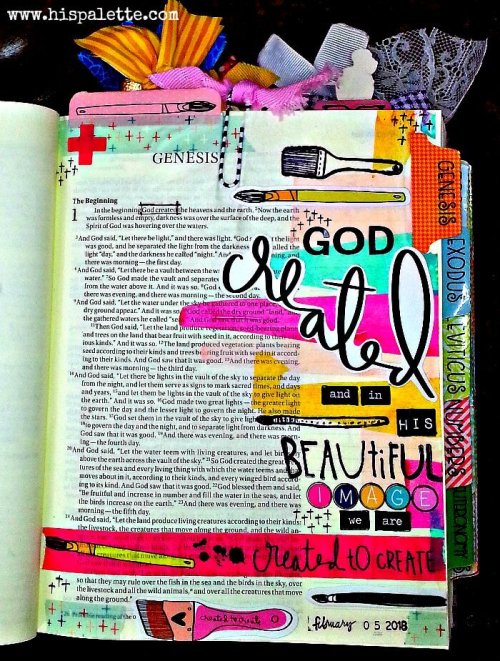 www.hispalette.com
GENESIS
The Beginning
1 In the beginning God created the heavens and the earth. 2Now the earth
was formless and empty, darkness was over the surface of the deep, and the
Spirit of God was hovering over the waters.
3And God said, "Let there be light," and there was light. 4God
was good, and he separated the light from the darkness.
light "day," and the darkness he called "night."
there was morning—the first day.
6And God said, "Let there be a vault between the
water." 7So God made the vault and separated
from the water above it. And it was so. 8God
there was evening, and there was morning—the second day.
9And God said, "Let the water under the sky be gathered to one place,
dry ground appear." And it was so. 10God called the dry ground "land,"
the gathered waters he called "seas." And God saw that it was good.
11Then God said, "Let the land produce vegetation: seed-bearing plants
and trees on the land that bear fruit with seed in it, according to their
ious kinds." And it was so. 12The land produced vegetation: plants bearing
seed according to their kinds and trees bearing fruit with seed in it accord-
ing to their kinds. And God saw that it was good. 13And there was evening,
and there was morning—the third day.
14And God said, "Let there be lights in the vault of the sky to separate the
day from the night, and let them serve as signs to mark sacred times, and days
and years, 15and let them be lights in the vault of the sky to give light on
the earth." And it was so. 16God made two great lights—the greater light
to govern the day and the lesser light to govern the night. He also made
the stars. 17God set them in the vault of the sky to give light
18to govern the day and the night, and to separate light from darkness. And
God saw that it was good. 19And there was evening, and there was morn-
ing—the fourth day.
20And God said, "Let the water teem with living creatures, and let
above the earth across the vault of the sky." 21So God created the great
tures of the sea and every living thing with which the water teems and
moves about in it, according to their kinds, and every winged bird accord-
ing to its kind. And God saw that it was good. 22God blessed them and said,
"Be fruitful and increase in number and fill the water in the seas, and let
the birds increase on the earth." 23And there was evening, and there was
morning—the fifth day.
24And God said, "Let the land produce living creatures according to their kinds:
the livestock, the creatures that move along the ground, and the wild
so that they may rule over the fish in the sea and the birds in the sky, over
the livestock and all the wild animals, and over all the creatures that move
along the ground."
GOD
created
and in
HIS
BEAUTIFUL
IMAGE
we are
created to CREATE
february 05 2018
GENESIS
EXODUS
LEVITICUS
NUMBERS